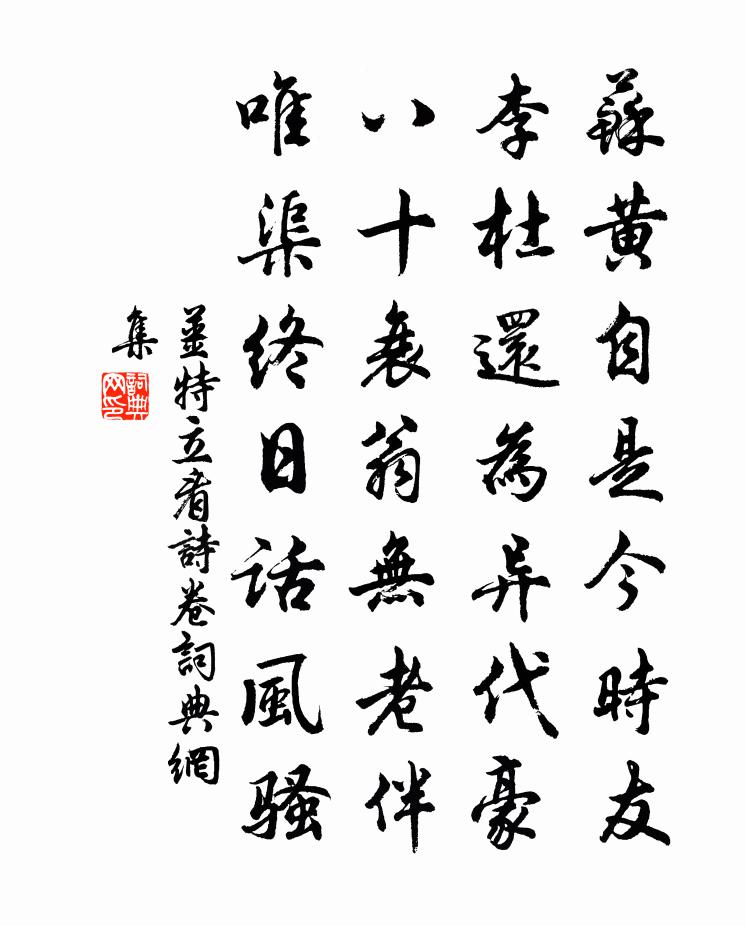 蘇黃自是今時友
李杜還為异代豪
八十衰翁無老伴
唯渠終日話風騷
姜特立看詩卷詞典網
集
詞典
网印